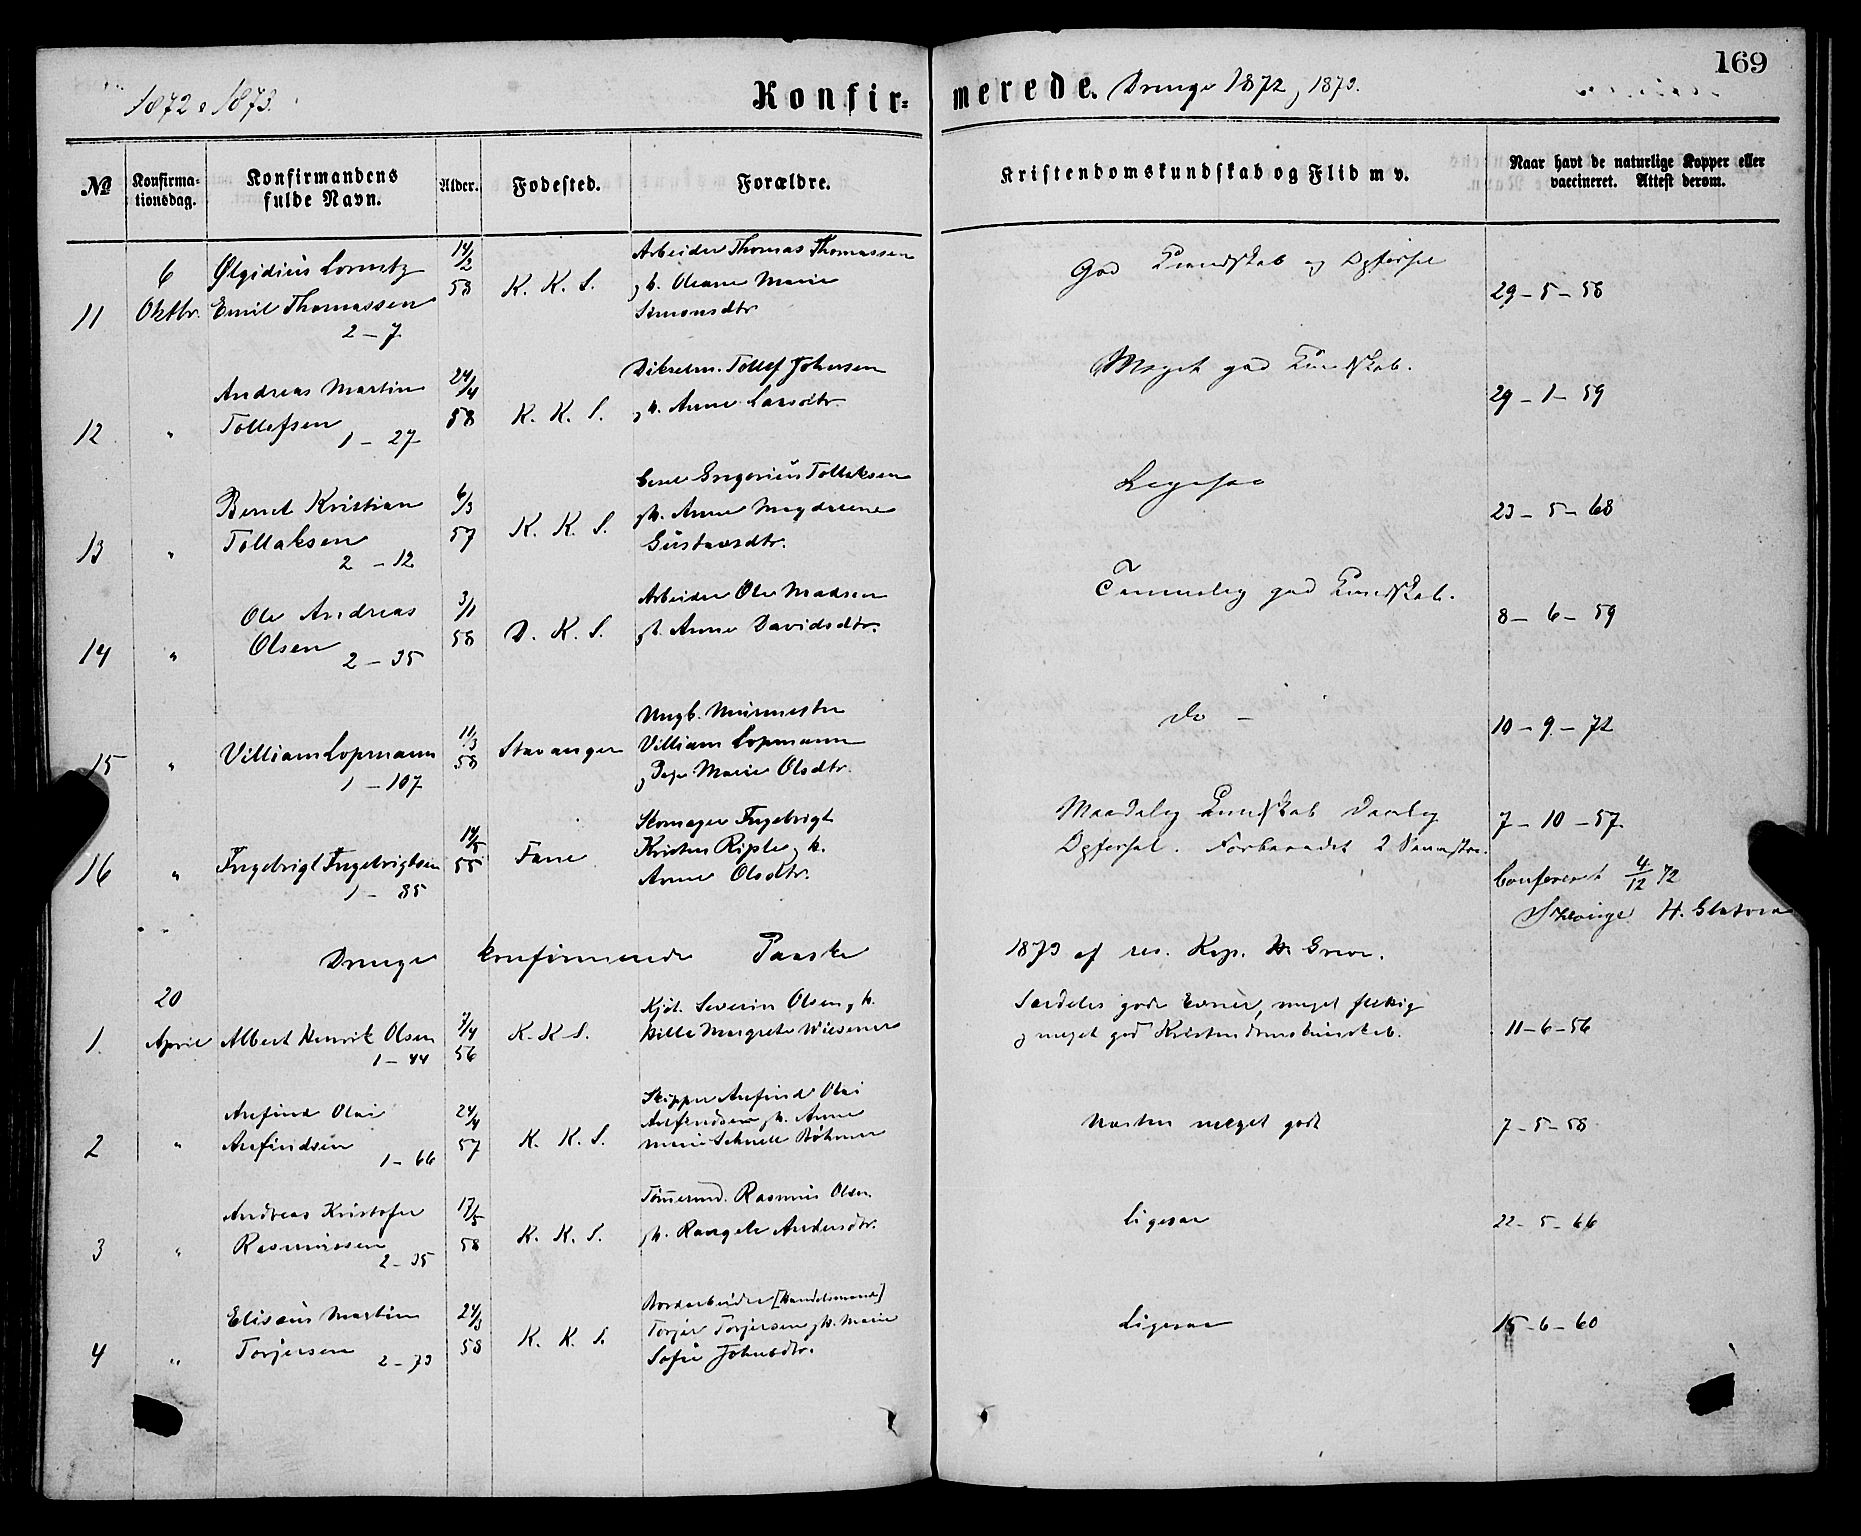 169
1872 & 1873.
Konfir-
merede. Drenge 1872, 1873.
No
Konfirma-
tionsdag.
Konfirmandens
fulde Navn.
Alder.
Fødested.
Forældre.
Kristendomskundskab og Flid m v.
Naar havt de naturlige Kopper eller
vaccineret. Attest derom.
11
6
Oktbr.
Ølgidius Lorentz
Emil Thomassen
2 - 7
14/2
58
K. K. S.
Arbeider Thomas Thomassen
Oleane Marie
Simonsdtr.
God Kundskab og Opførsel
29 - 5 - 58
12
"
Andreas Martin
Tollefsen
1 - 27
24/4
58
K. K. S.
Tollef Johnsen
h. Anne Larsdtr.
Meget god Kundskab.
29 - 1 - 59
13
"
Bernt Kristian
Tollaksen
2 - 12
6/3
57
K. K. S.
Gregorius Tollaksen
h. Anne Magdalene
Gustavsdtr.
Ligesaa
23 - 5 - 68
14
"
Ole Andreas
Olsen
2 - 35
3/1
58
D. K. S.
Arbeider Ole Madsen
h. Anne Davidsdtr.
Temmelig god Kundskab.
8 - 6 - 59
15
"
Villiam Lopmann
1 - 107
11/3
58
Stavanger
Ungk. Murmester
Villiam Lopmann
Pige Marie Olsdtr.
do -
10 - 9 - 72
16
"
Ingebrigt Ingebrigtsen
1 - 85
14/5
55
Fane
Skomager Ingebrigt
Kristen Riple, h.
Anne Olsdtr.
Maadelig Kundskab Daarlig
Opførsel. Forberedet 2 Semestre.
7 - 10 - 57.
Confereret 4/12 72
Drenge konfirmerede Paaske
1873 af res. Kap. Greve.
1.
20
April
Albert Henrik Olsen
1 - 44
7/4
56
K. K. S.
Kjøl. Severin Olsen, h.
Hille Margrete Wiesener
Særdeles gode Evner, meget flittig
og meget god Kristendomskundskab.
11-6-56
2
"
Arefind Olai
Arefindsen
1 - 66
24/4
57
K. K. S.
Skipper Arefind Olai
Arefindsen, h. Anne
Marie Schnell Bøhmer
Næsten meget godt
7 - 5 - 58
3
"
Andreas Kristofer
Rasmussen
2 - 35
17/5
58
K. K. S.
Tømmermd. Rasmus Olsen
h. Raagele Andersdtr.
Ligesaa
22 - 5 - 66
4
"
Elisæus Martin
Torjersen
2 - 73
24/3
58
K. K. S.
Bordarbeider [Handelsmand]
Torjer Torjersen, h. Marie
Sofie Johnsdtr.
Ligesaa
15 - 6 - 60